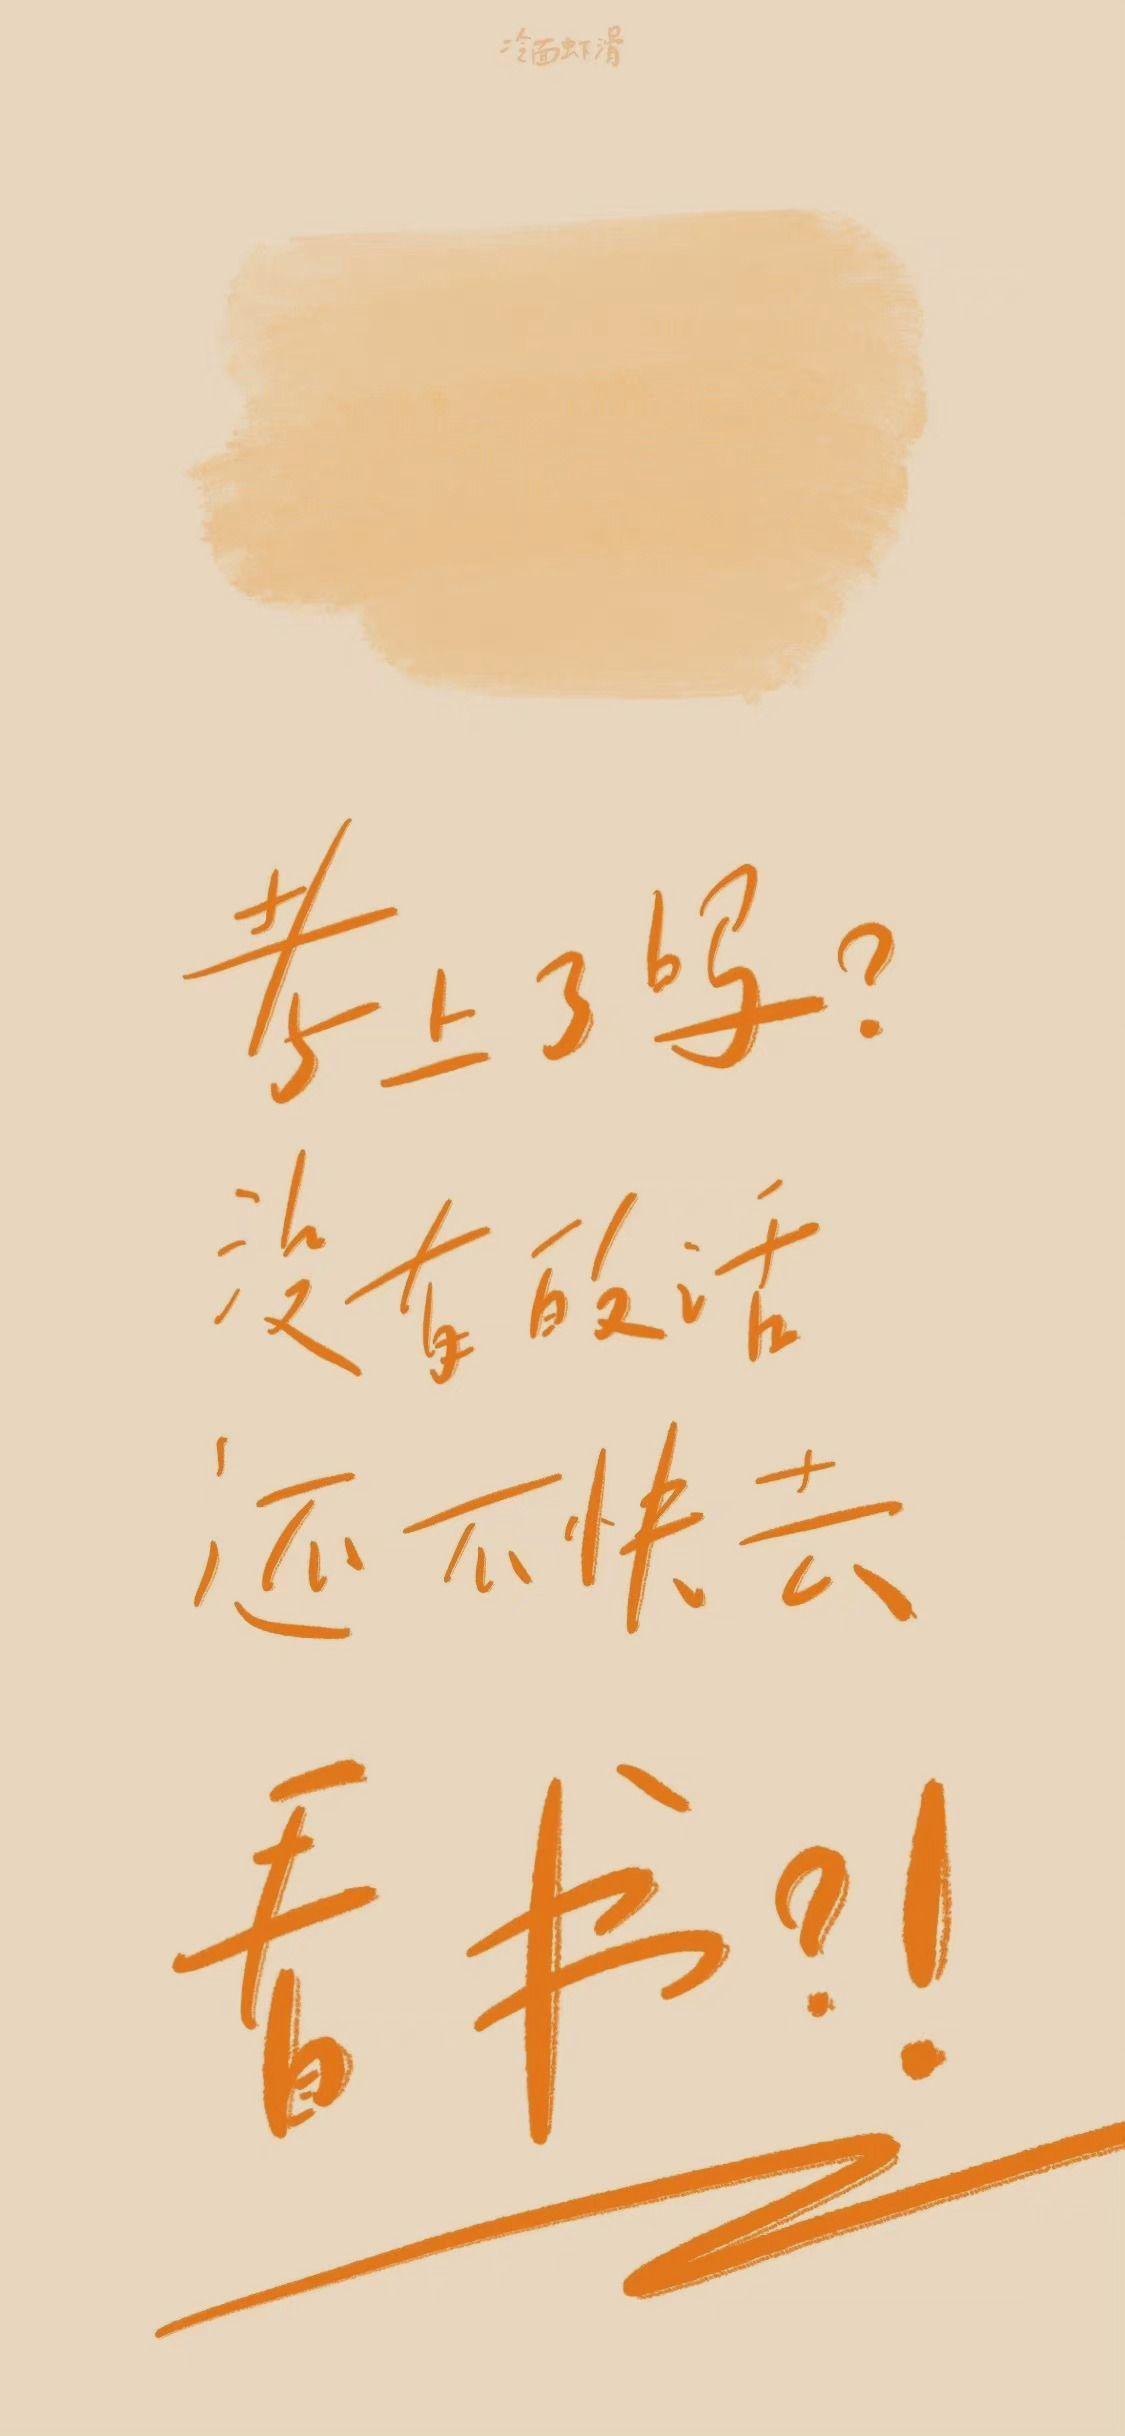 冷面虾滑
考上了吗?
没有的话
还不快去
看书?!